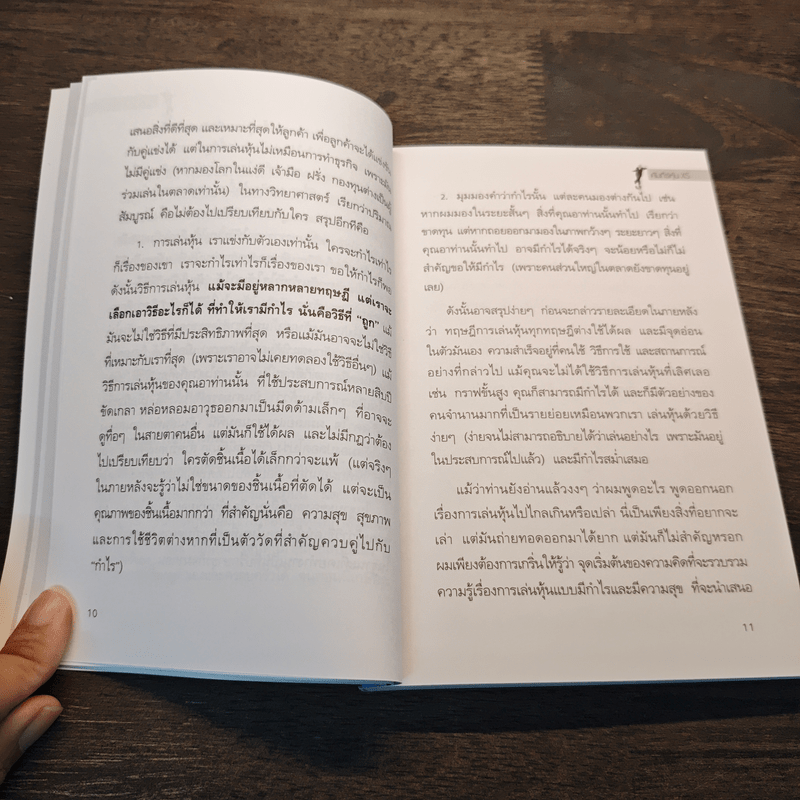 เสนอสิ่งที่ดีที่สุด และเหมาะที่สุดให้ลูกค้า เพื่อลูกค้าจะได้แข่งขัน
กับคู่แข่งได้ แต่ในการเล่นหุ้นไม่เหมือนการทำธุรกิจ เพราะมัน
ไม่มีคู่แข่ง (หากมองโลกในแง่ดี เจ้ามือ ฝรั่ง กองทุนต่างเป็นผู้
ร่วมเล่นในตลาดเท่านั้น) ในทางวิทยาศาสตร์ เรียกว่าปริมาณ
สัมบูรณ์ คือไม่ต้องไปเปรียบเทียบกับใคร สรุปอีกทีคือ
1. การเล่นหุ้น เราแข่งกับตัวเองเท่านั้น ใครจะกำไรเท่าไร
ก็เรื่องของเขา เราจะกำไรเท่าไรก็เรื่องของเรา ขอให้กำไรก็พอ
ดังนั้นวิธีการเล่นหุ้น แม้จะมีอยู่หลากหลายทฤษฎี แต่เราจะ
เลือกเอาวิธีอะไรก็ได้ ที่ทำให้เรามีกำไร นั่นคือวิธีที่ "ถูก" แม้
มันจะไม่ใช่วิธีที่มีประสิทธิภาพที่สุด หรือแม้มันอาจจะไม่ใช่วิธี
ที่เหมาะกับเราที่สุด (เพราะเราอาจไม่เคยทดลองใช้วิธีอื่นๆ) แม้
วิธีการเล่นหุ้นของคุณอาท่านนั้น ที่ใช้ประสบการณ์หลายสิบปี
ขัดเกลา หล่อหลอมอาวุธออกมาเป็นมีดด้ามเล็กๆ ที่อาจจะ
ดูทื่อๆ ในสายตาคนอื่น แต่มันก็ใช้ได้ผล และไม่มีกฎว่าต้อง
ไปเปรียบเทียบว่า ใครตัดชิ้นเนื้อได้เล็กกว่าจะแพ้ (แต่จริงๆ
ในภายหลังจะรู้ว่าไม่ใช่ขนาดของชิ้นเนื้อที่ตัดได้ แต่จะเป็น
คุณภาพของชิ้นเนื้อมากกว่า ที่สำคัญนั่นคือ ความสุข สุขภาพ
และการใช้ชีวิตต่างหากที่เป็นตัววัดที่สำคัญควบคู่ไปกับ
"กำไร")
10
2. มุมมองคำว่ากำไรนั้น แต่ละคนมองต่างกันไป เช่น
หากผมมองในระยะสั้นๆ สิ่งที่คุณอาท่านนั้นทำไป เรียกว่า
ขาดทุน แต่หากถอยออกมามองในภาพกว้างๆ ระยะยาวๆ สิ่งที่
คุณอาท่านนั้นทำไป อาจมีกำไรได้จริงๆ จะน้อยหรือไม่ก็ไม่
สำคัญขอให้มีกำไร (เพราะคนส่วนใหญ่ในตลาดยังขาดทุนอยู่
เลย)
ดังนั้นอาจสรุปง่ายๆ ก่อนจะกล่าวรายละเอียดในภายหลัง
ว่า ทฤษฎีการเล่นหุ้นทุกทฤษฎีต่างใช้ได้ผล และมีจุดอ่อน
ในตัวมันเอง ความสำเร็จอยู่ที่คนใช้ วิธีการใช้ และสถานการณ์
อย่างที่กล่าวไป แม้คุณจะไม่ได้ใช้วิธีการเล่นหุ้นที่เลิศเลอ
เช่น กราฟขั้นสูง คุณก็สามารถมีกำไรได้ และก็มีตัวอย่างของ
คนจำนวนมากที่เป็นรายย่อยเหมือนพวกเรา เล่นหุ้นด้วยวิธี
ง่ายๆ (ง่ายจนไม่สามารถอธิบายได้ว่าเล่นอย่างไร เพราะมันอยู่
ในประสบการณ์ไปแล้ว) และมีกำไรสม่ำเสมอ
แม้ว่าท่านยังอ่านแล้วงงๆ ว่าผมพูดอะไร พูดออกนอก
เรื่องการเล่นหุ้นไปไกลเกินหรือเปล่า นี่เป็นเพียงสิ่งที่อยากจะ
เล่า แต่มันถ่ายทอดออกมาได้ยาก แต่มันก็ไม่สำคัญหรอก
ผมเพียงต้องการเกริ่นให้รู้ว่า จุดเริ่มต้นของความคิดที่จะรวบรวม
ความรู้เรื่องการเล่นหุ้นแบบมีกำไรและมีความสุข ที่จะนำเสนอ
11